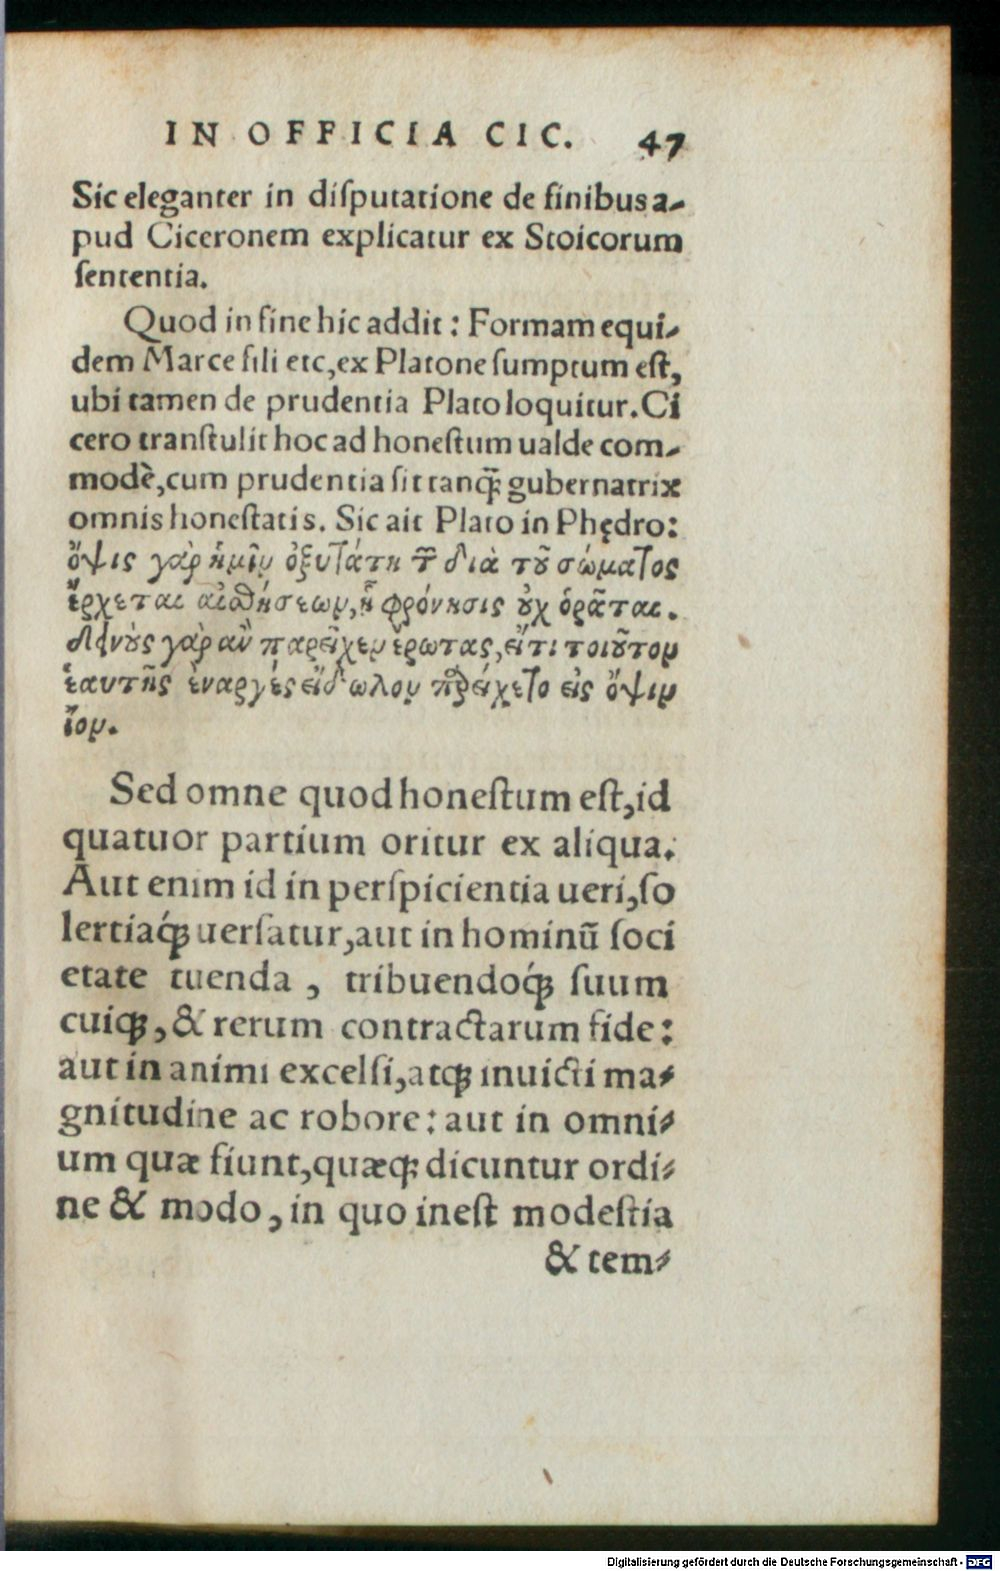 IN OFFICIA CIC. 47
Sic eleganter in diſputatione de finibus a-
pud Ciceronem explicatur ex Stoicorum
ſententia.
Quod in fine hic addit: Formam equi-
dem Marce fili etc, ex Platone ſumptum eſt,
ubi tamen de prudentia Plato loquitur. Ci
cero tranſtulit hoc ad honeſtum ualde com-
modè, cum prudentia ſit tanq̃; gubernatrix
omnis honeſtatis. Sic ait Plato in Phędro:
ὄψις γὰρ ἡμῖν ὀξυτάτη τ̃ διὰ τοῦ σώματος
ἔρχεται αἰσθήσεων, ᾗ φρόνησις οὐχ ὁρᾶται.
δεινοὺς γὰρ ἂν παρεῖχεν ἔρωτας, εἴ τι τοιοῦτον
ἑαυτῆς ἐναργὲς εἴδωλον παρείχετο εἰς ὄψιν
ἰόν.
Sed omne quod honeſtum eſt, id
quatuor partium oritur ex aliqua.
Aut enim id in perſpicientia ueri, ſo
lertiaq́; uerſatur, aut in hominũ ſoci
etate tuenda, tribuendoq́; ſuum
cuiq;, & rerum contractarum fide:
aut in animi excelſi, atq; inuicti ma-
gnitudine ac robore: aut in omni-
um quæ fiunt, quæq; dicuntur ordi-
ne & modo, in quo ineſt modeſtia
& tem-
Digitalisierung gefördert durch die Deutsche Forschungsgemeinschaft - DFG